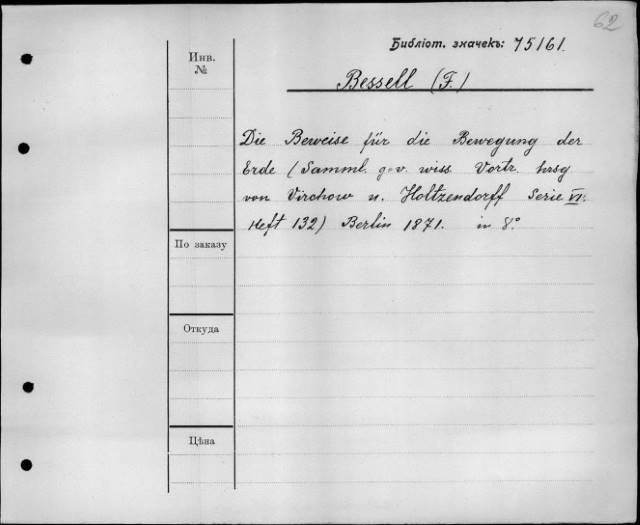 62
Библіот. значекъ: 75161.
Инв.
№
Bessell (F.)
Die Beweise für die Bewegung der
Erde (Samml. g.v. wiss. Vortr. hrsg
von Virchow u. Holtzendorff Serie VI.
Heft 132) Berlin 1871. in 8.°
По заказу
Откуда
Цѣна